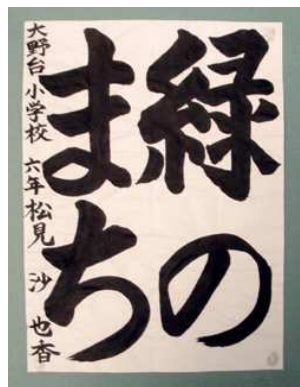 緑の
まち
大野台小学校 六年 松見 沙也香